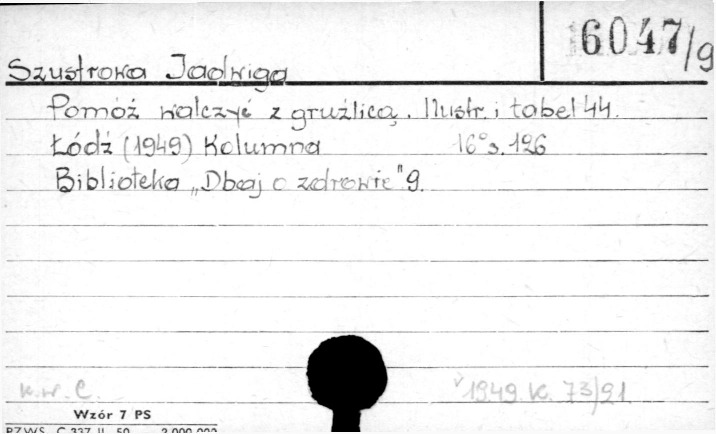 6047/9
Szustrowa Jadwiga
Pomóż walczyć z gruźlicą. Ilustr. i tabel 44.
Łódź (1949) Kolumna 16° s. 126
Biblioteka „Dbaj o zdrowie" 9.
k.w. C. 1949. K. 73/91
Wzór 7 PS
PZWS C 337 II. 50 2.000.000